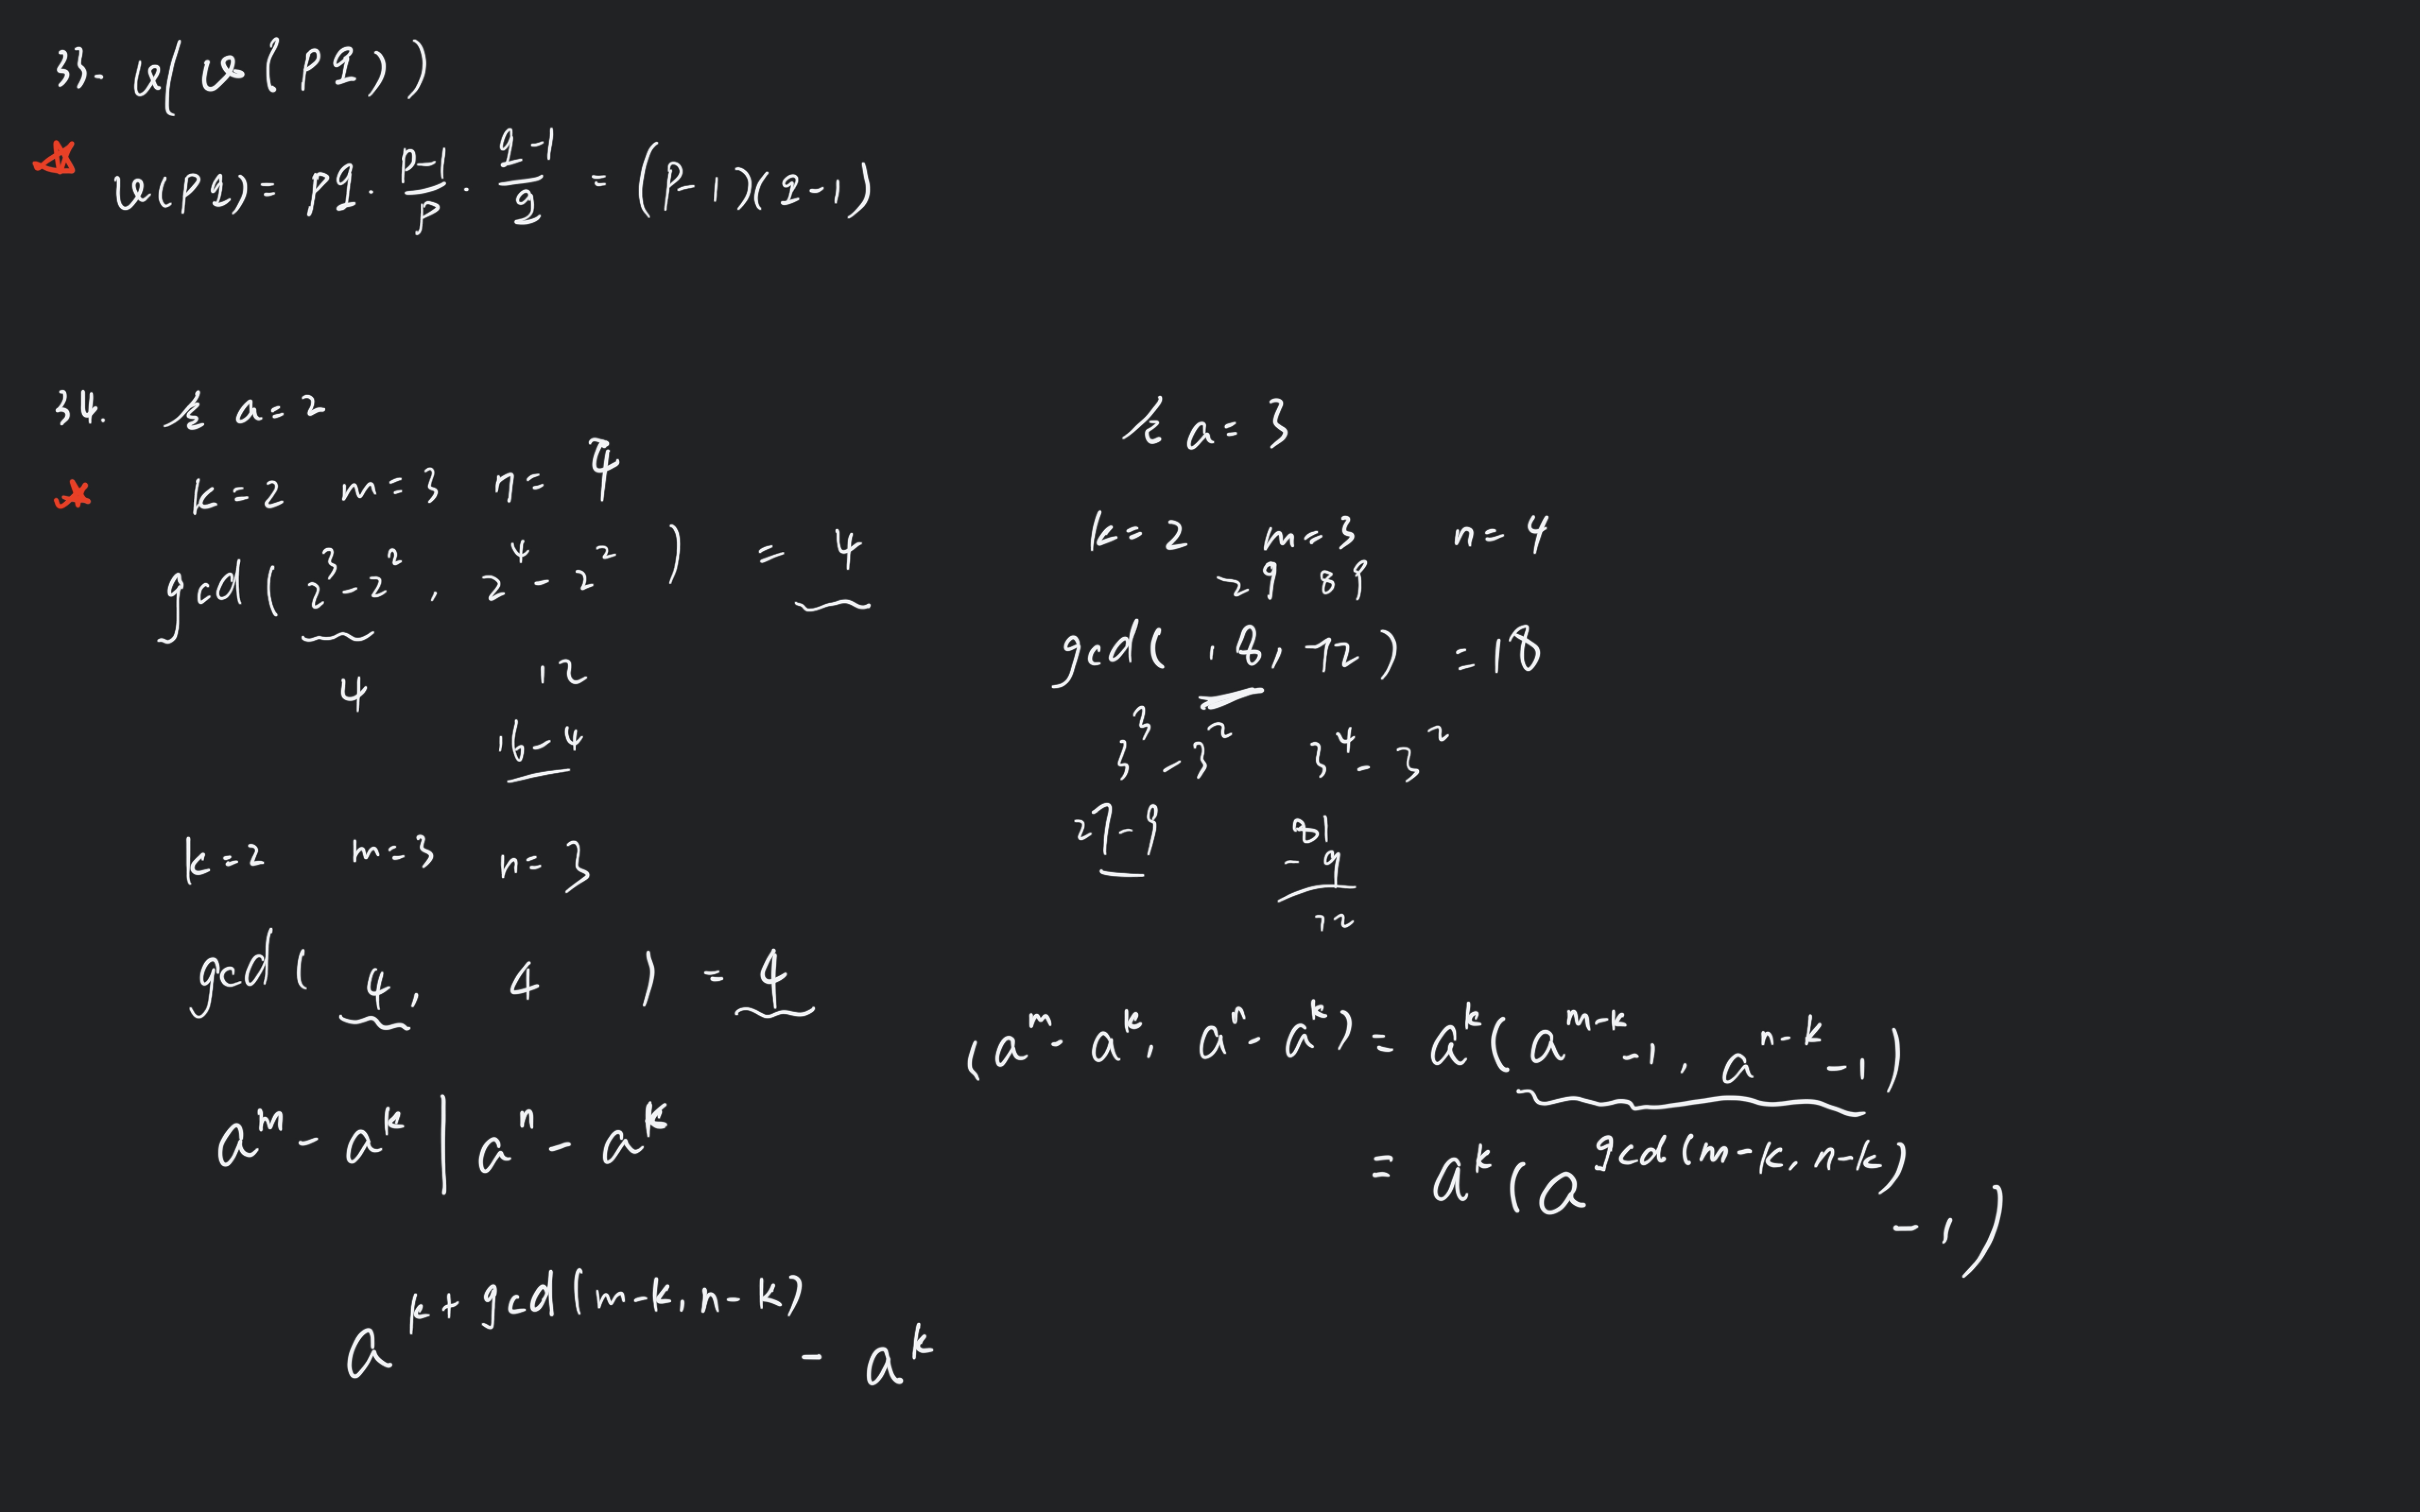 33. φ(φ(pq))
φ(pq) = pq · (p-1)/p · (q-1)/q = (p-1)(q-1)
34. 令 a=2
k=2 m=3 n=4
gcd( 2^3-2^2, 2^4-2^2 ) = 4
4 12
16-4
k=2 m=3 n=3
gcd( 4, 4 ) = 4
a^m - a^k | a^n - a^k
a^(k+gcd(m-k, n-k)) - a^k
令 a=3
k=2 m=3 n=4
gcd( 18, 72 ) = 18
3^3-3^2 3^4-3^2
27-9 81
- 9
72
(a^m - a^k, a^n - a^k) = a^k(a^(m-k) -1, a^(n-k) -1)
= a^k(a^(gcd(m-k, n-k)) -1)